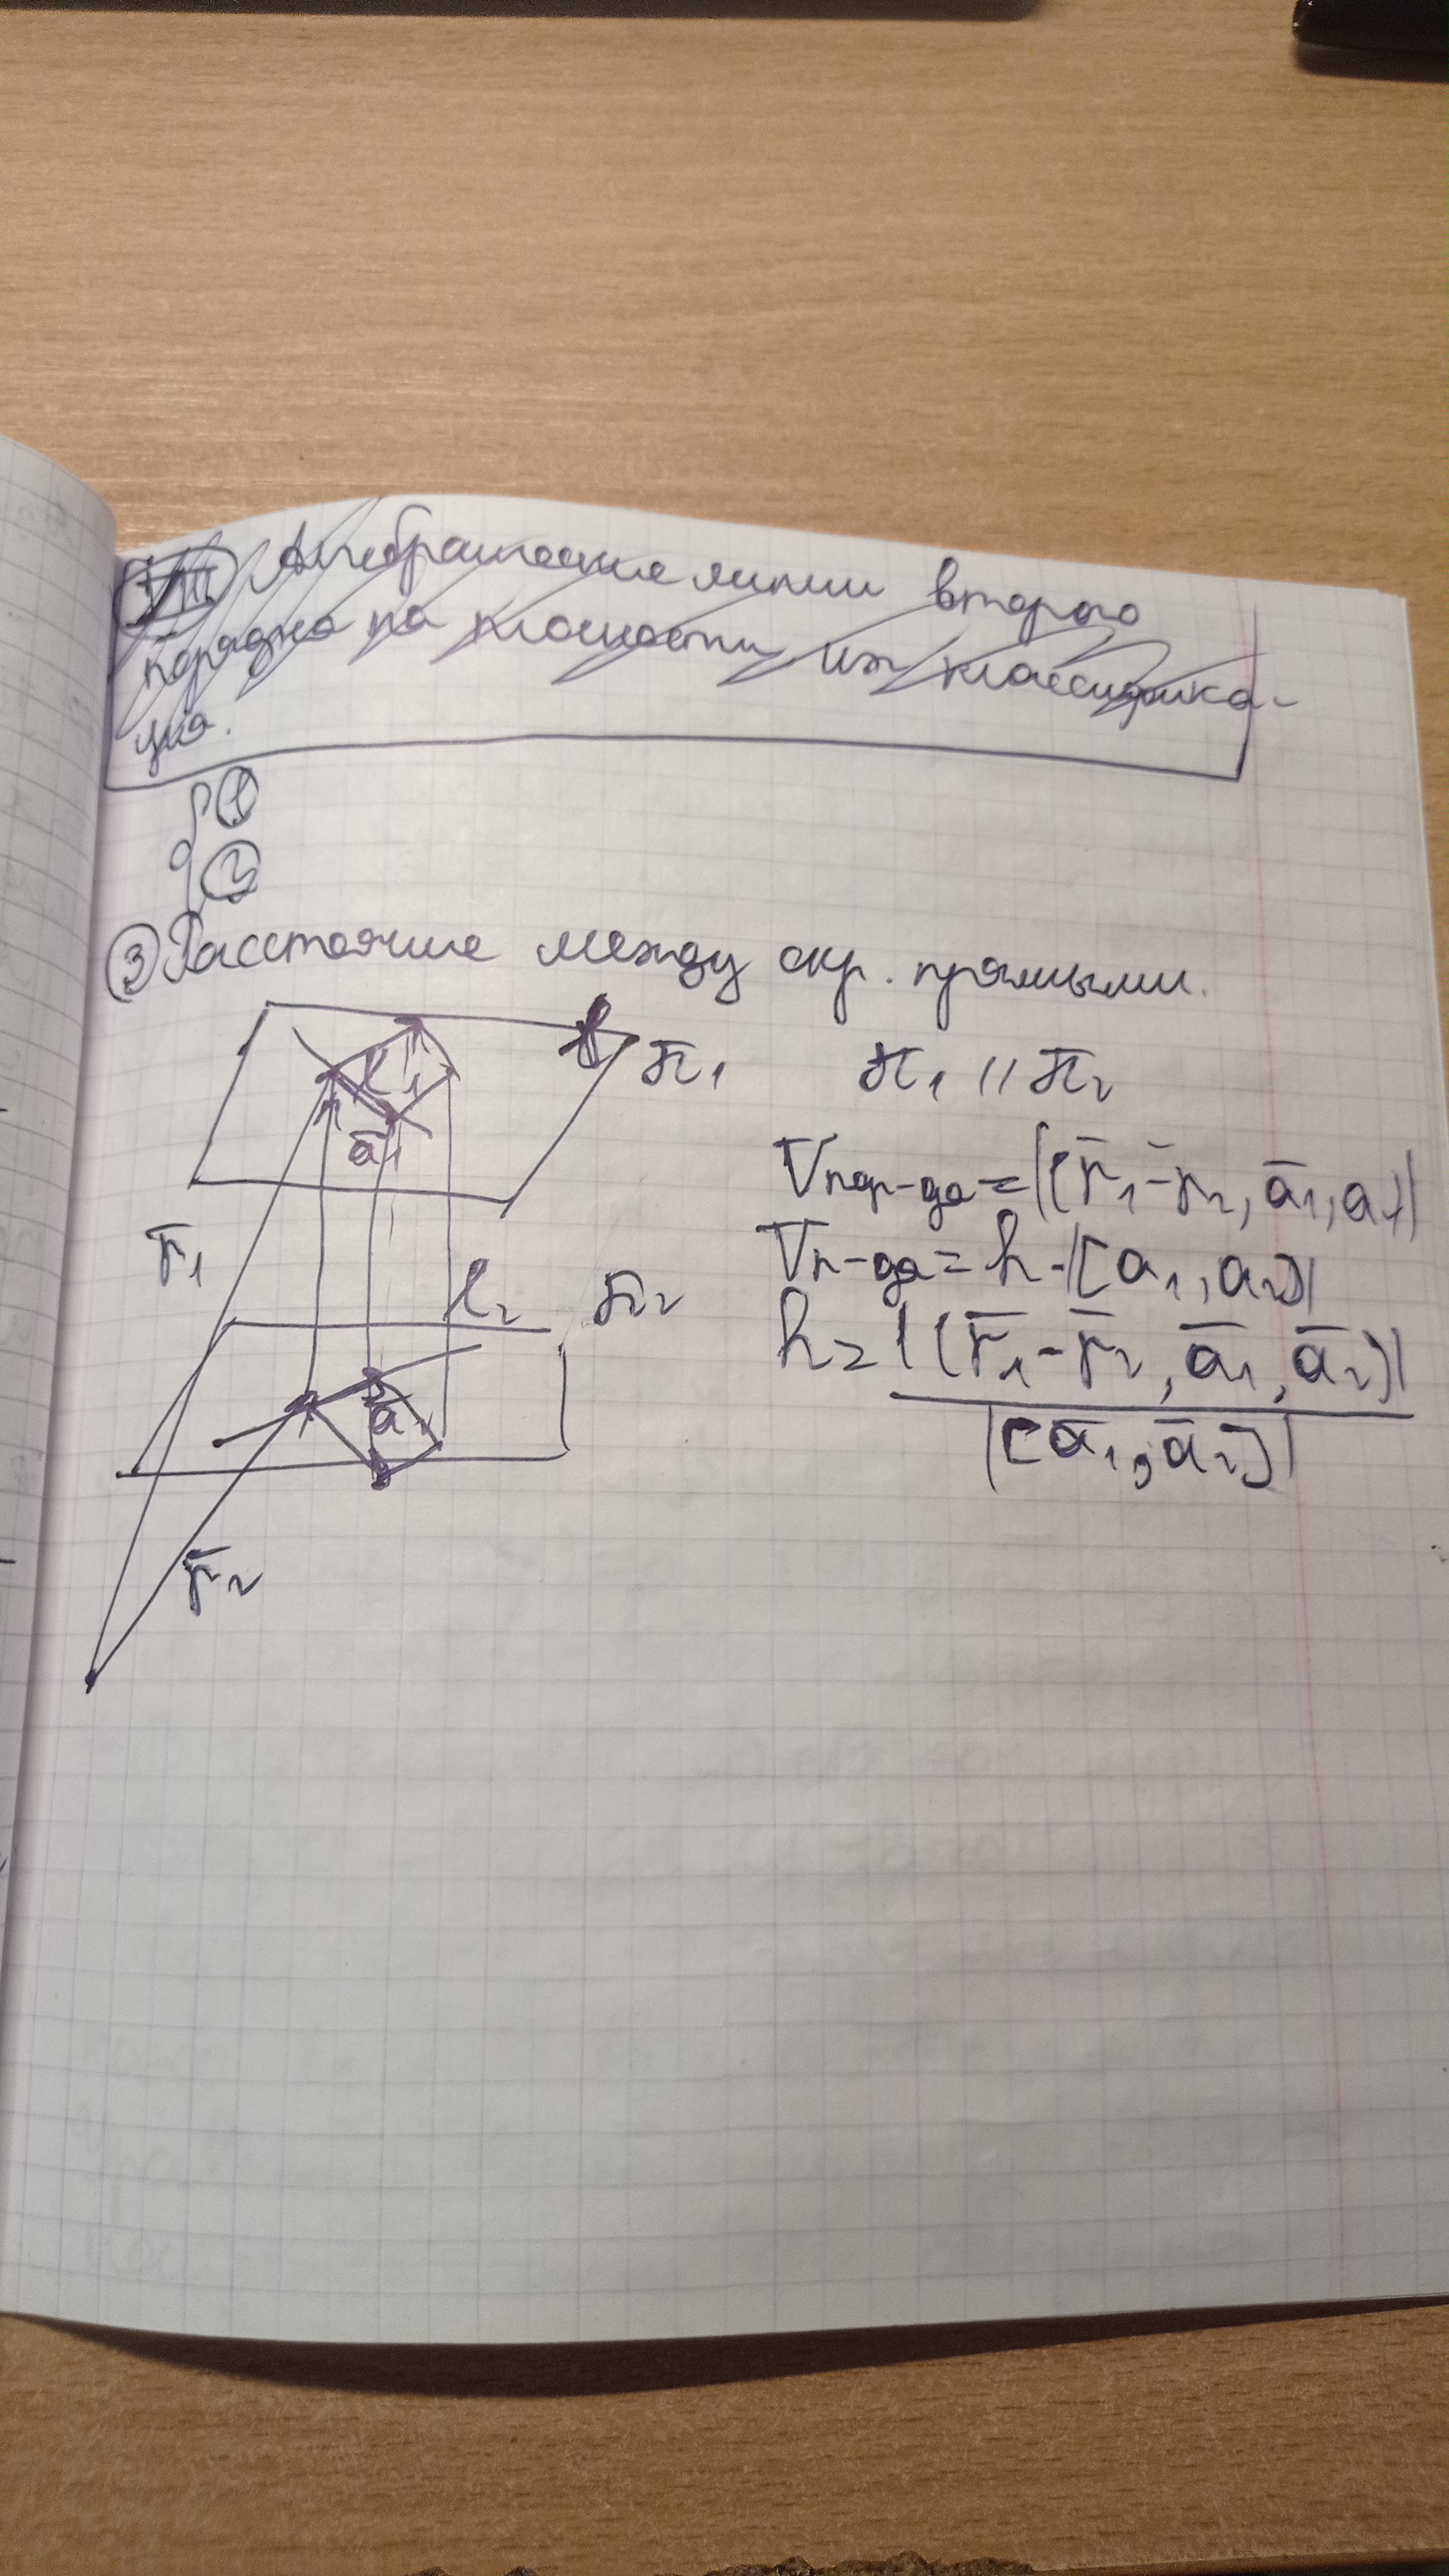 VIII Алгебраические линии второго
порядка на плоскости, их классифика-
ция.
1
2
3 Расстояние между скр. прямыми.
l₁ π₁ π₁ || π₂
ā₁
V пар-да = |(r̄₁ - r̄₂, ā₁, a₂)|
r̄₁
V п-да = h · |[a₁, a₂]|
l₂ π₂
h = |(r̄₁ - r̄₂, ā₁, ā₂)|
ā₂
|[ā₁, ā₂]|
r̄₂